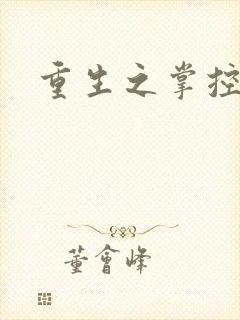 重生之掌控
董會峰